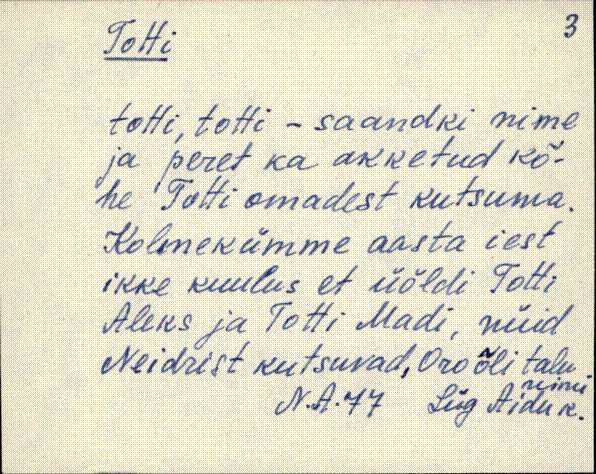 3
Totti
totti, totti - saandki nime
ja peret ka akketud kõ-
he Totti omadest kutsuma.
Kolmekümme aasta iest
ikke kuulus et üöldi Totti
Aleks ja Totti Madi, nüid
Neidrist kutsuvad, Oro õli talu
nimi.
N.A. 77 Lüg Aidu k.